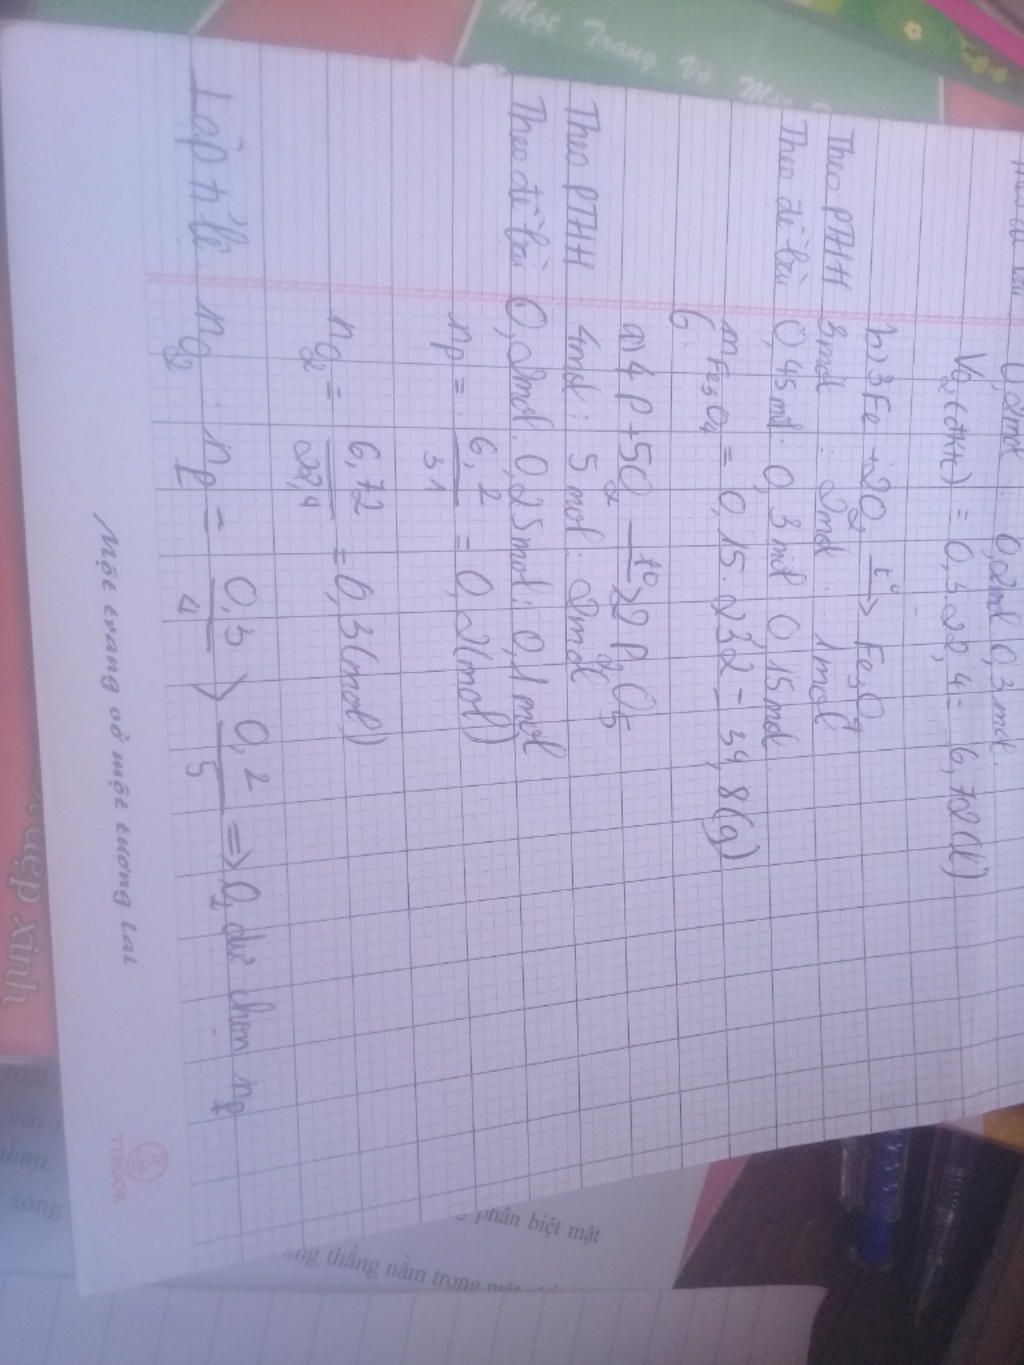 Một Trang Vở Một
0,2mol : 0,2mol 0,3mol
VO₂(đktc) = 0,3.22,4 = 6,72(l)
b) 3Fe + 2O₂ t⁰→ Fe₃O₄
Theo PTHH 3mol : 2mol : 1mol
Theo đề bài 0,45mol : 0,3mol : 0,15mol
mFe₃O₄ = 0,15.232 = 34,8(g)
6.
a) 4P + 5O₂ t⁰→ 2P₂O₅
Theo PTHH 4mol : 5mol : 2mol
Theo đề bài 0,2mol : 0,25mol : 0,1mol
nP = 6,2/31 = 0,2(mol)
nO₂ = 6,72/22,4 = 0,3(mol)
Lập tỉ lệ nO₂ : nP = 0,3/4 > 0,2/5 => O₂ dư chọn nP
Một trang vở một tương lai
TTBOOK
đẹp xinh
phân biệt mặt
thẳng nằm trong mặt
song